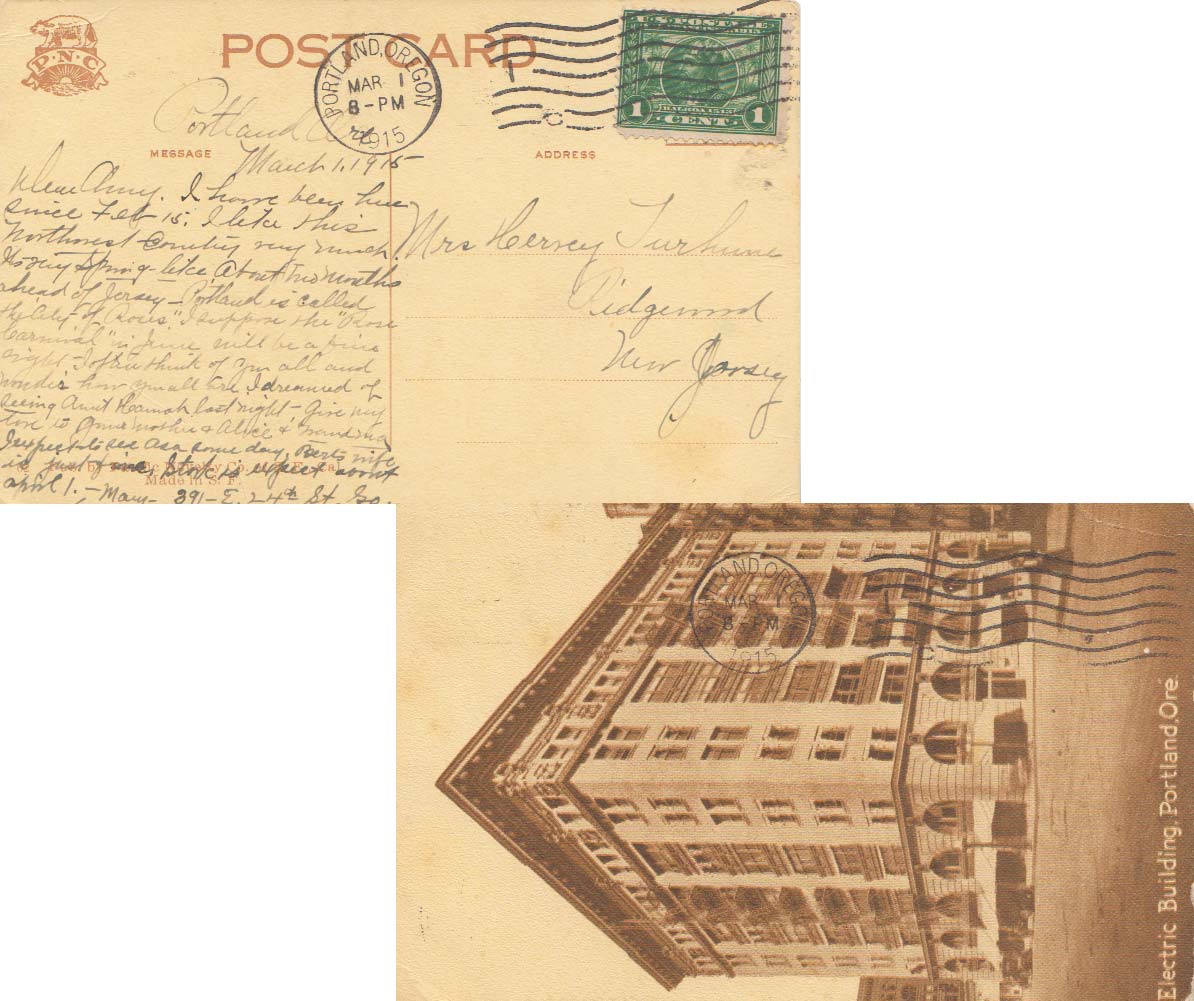 P·N·C
POST CARD
PORTLAND, OREGON
MAR 1
8-PM
1915
U.S. POSTAGE
BALBOA 1513
1 CENT 1
MESSAGE
ADDRESS
Portland Ore
March 1, 1915
Dear Amy. I have been here
since Feb 15. I like this
Northwest Country very much.
Its very Spring-like. About two months
ahead of Jersey - Portland is called
the City of Roses." I suppose the "Rose
Carnival" in June will be a fine
sight - I often think of you all and
wonder how you all are. I dreamed of
seeing Aunt Hannah last night - Give my
love to your mother & Alice & Grandma
I expect to see Asa some day. Berts wife
is just fine, Stork is expect about
April 1. - Mary - 391 - E. 24th St. So.
Made in S. F.
Mrs Hervey Terhune
Ridgewood
New Jersey
PORTLAND, OREGON
MAR 1
8-PM
1915
Electric Building, Portland, Ore.